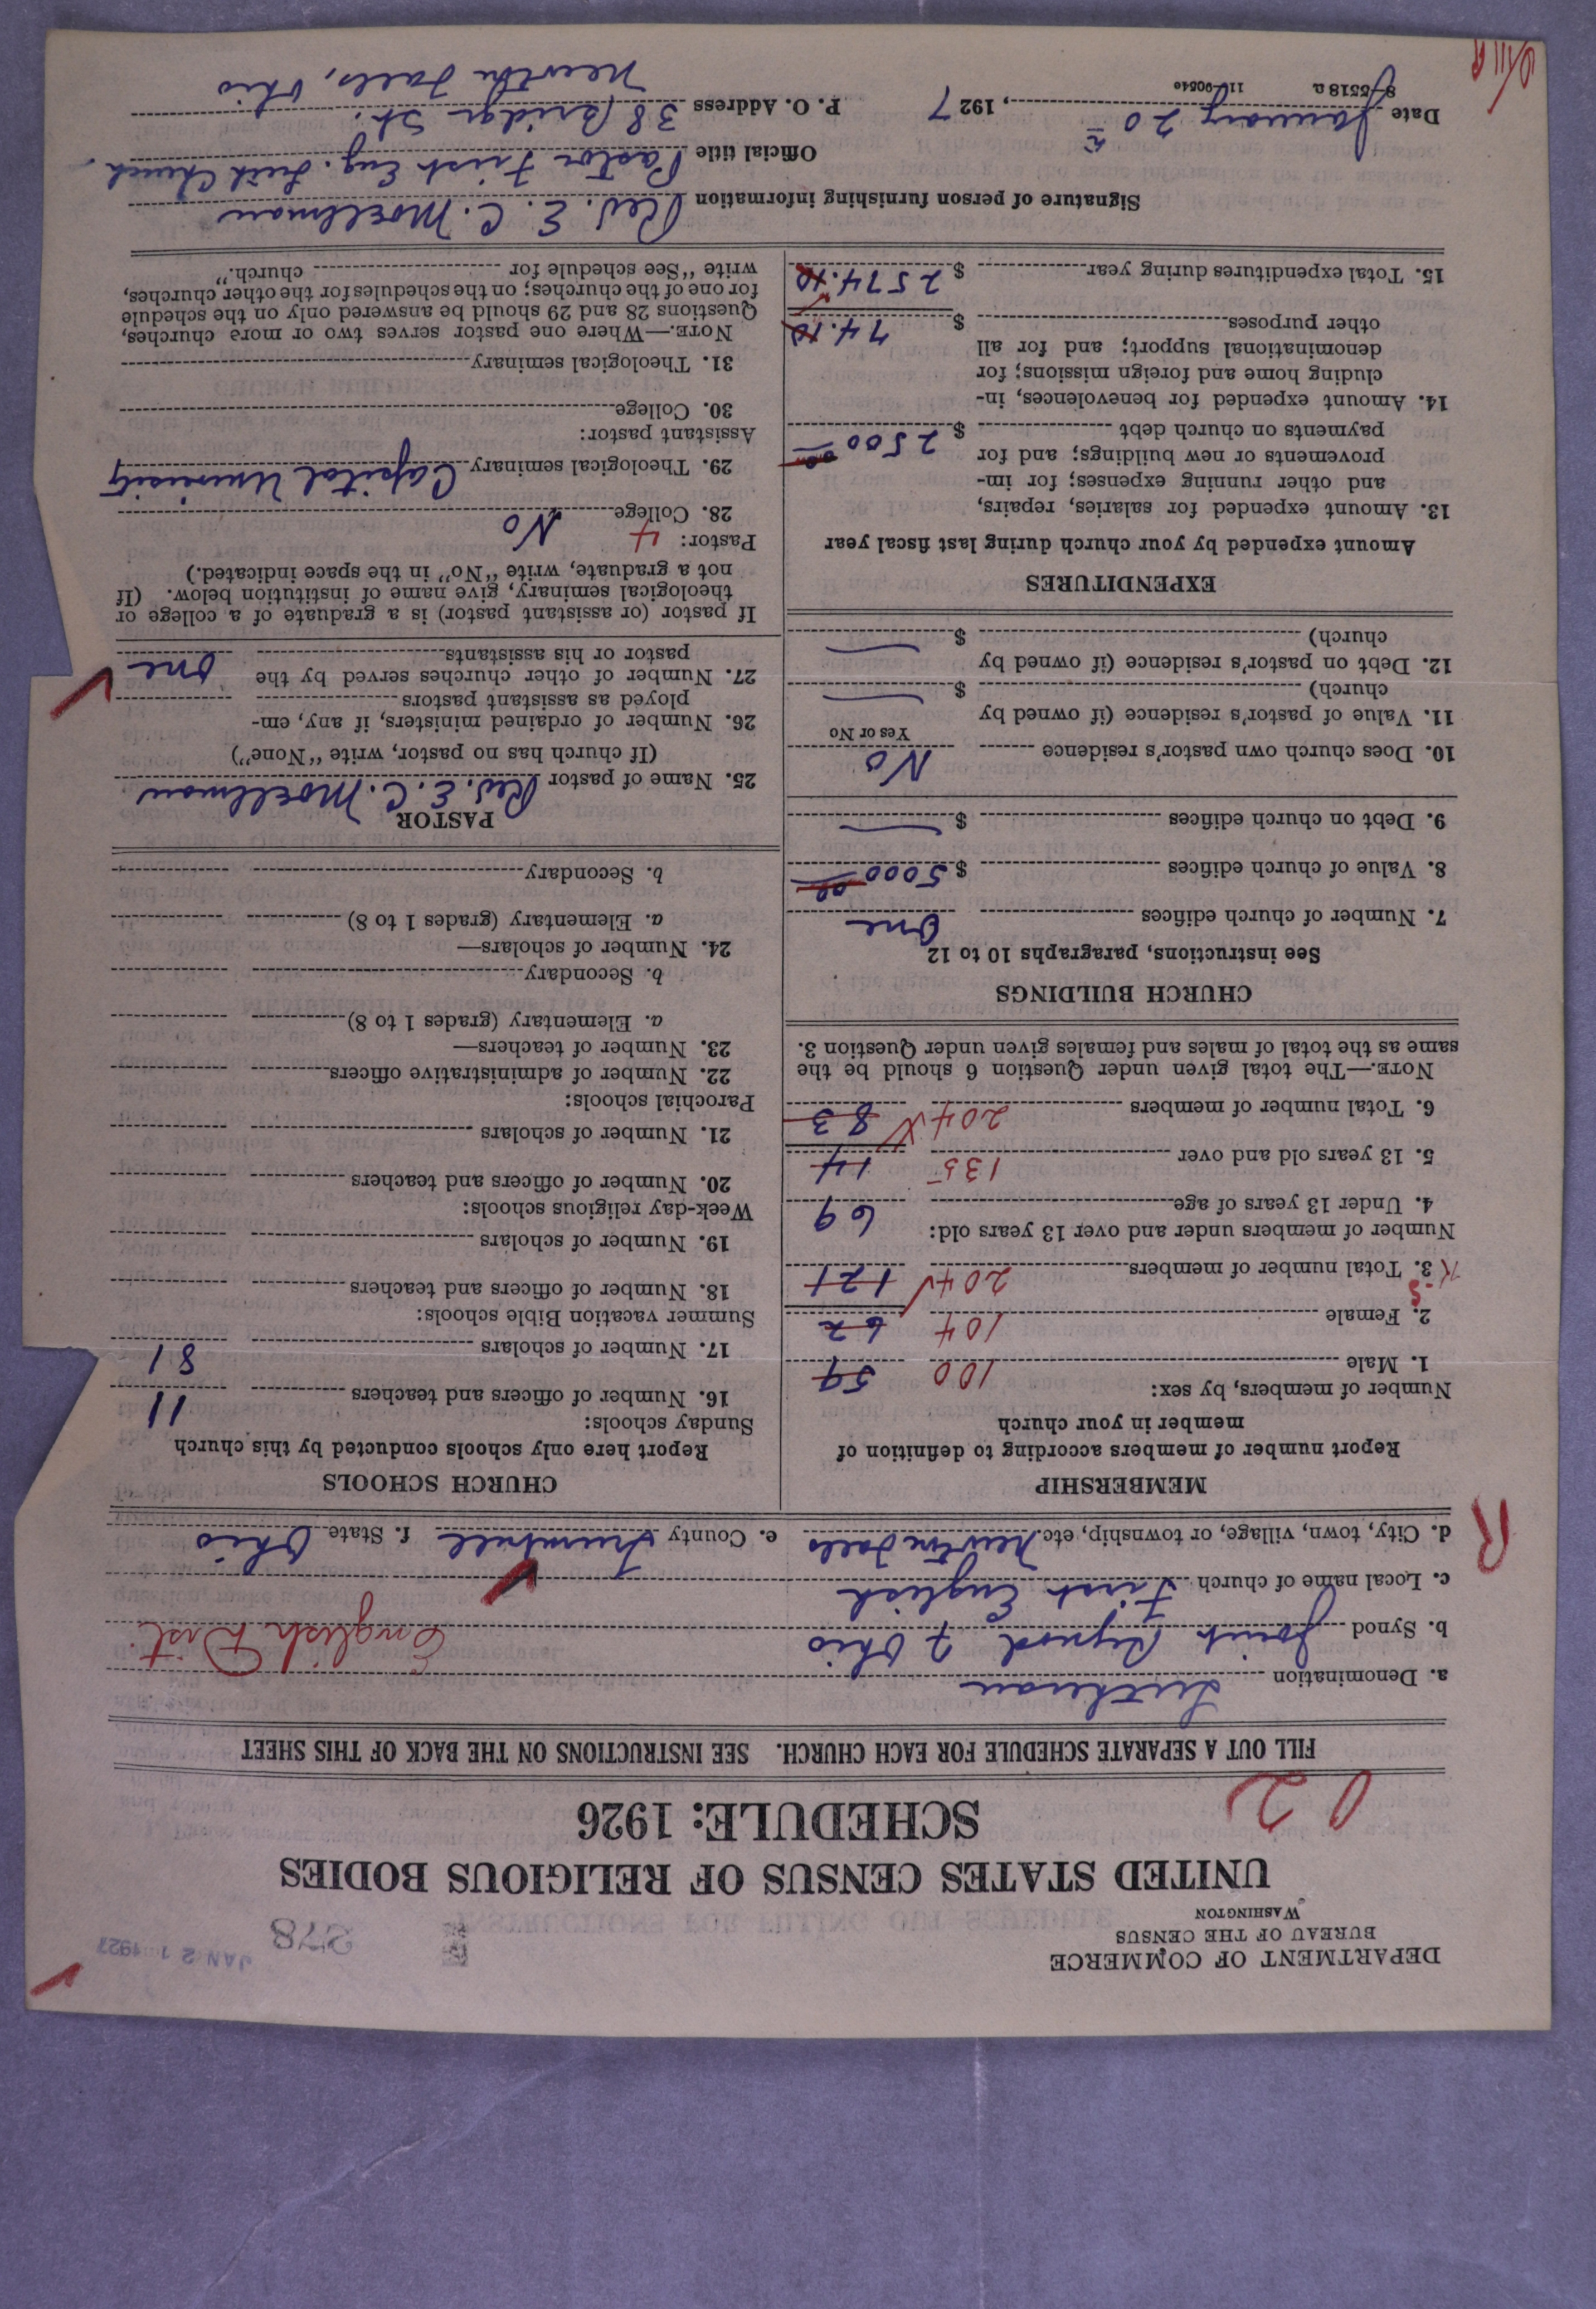 DEPARTMENT OF COMMERCE
BUREAU OF THE CENSUS
WASHINGTON
278
JAN 21 1927
UNITED STATES CENSUS OF RELIGIOUS BODIES
SCHEDULE: 1926
FILL OUT A SEPARATE SCHEDULE FOR EACH CHURCH. SEE INSTRUCTIONS ON THE BACK OF THIS SHEET
a. Denomination Lutheran
b. Synod Joint Synod of Ohio English Dist.
c. Local name of church First English
d. City, town, village, or township, etc. Newton Falls e. County Trumbull f. State Ohio
R
MEMBERSHIP
Report number of members according to definition of
member in your church
Number of members, by sex:
1. Male 100 59
2. Female 104 62
3. Total number of members 204 121
Number of members under and over 13 years old:
4. Under 13 years of age 69
5. 13 years old and over 135 14
6. Total number of members 204 83
NOTE.—The total given under Question 6 should be the
same as the total of males and females given under Question 3.
CHURCH BUILDINGS
See instructions, paragraphs 10 to 12
7. Number of church edifices One
8. Value of church edifices $ 5000 00
9. Debt on church edifices $ —
10. Does church own pastor's residence No
Yes or No
11. Value of pastor's residence (if owned by
church) $ —
12. Debt on pastor's residence (if owned by
church) $ —
EXPENDITURES
Amount expended by your church during last fiscal year
13. Amount expended for salaries, repairs,
and other running expenses; for im-
provements or new buildings; and for
payments on church debt $ 2500 00
14. Amount expended for benevolences, in-
cluding home and foreign missions; for
denominational support; and for all
other purposes $ 74.10
15. Total expenditures during year $ 2574.10
CHURCH SCHOOLS
Report here only schools conducted by this church
Sunday schools:
16. Number of officers and teachers 11
17. Number of scholars 81
Summer vacation Bible schools:
18. Number of officers and teachers
19. Number of scholars
Week-day religious schools:
20. Number of officers and teachers
21. Number of scholars
Parochial schools:
22. Number of administrative officers
23. Number of teachers—
a. Elementary (grades 1 to 8)
b. Secondary
24. Number of scholars—
a. Elementary (grades 1 to 8)
b. Secondary
PASTOR
25. Name of pastor Rev. E. C. Moellman
(If church has no pastor, write "None")
26. Number of ordained ministers, if any, em-
ployed as assistant pastors
27. Number of other churches served by the
pastor or his assistants One
If pastor (or assistant pastor) is a graduate of a college or
theological seminary, give name of institution below. (If
not a graduate, write "No" in the space indicated.)
Pastor: 4
28. College No
29. Theological seminary Capital University
Assistant pastor:
30. College
31. Theological seminary
NOTE.—Where one pastor serves two or more churches,
Questions 28 and 29 should be answered only on the schedule
for one of the churches; on the schedules for the other churches,
write "See schedule for church."
Signature of person furnishing information Rev. E. C. Moellman
Official title Pastor First Eng. Luth Church
Date January 20th, 1927 P. O. Address 38 Bridge St.
Newton Falls, Ohio
8-5518a